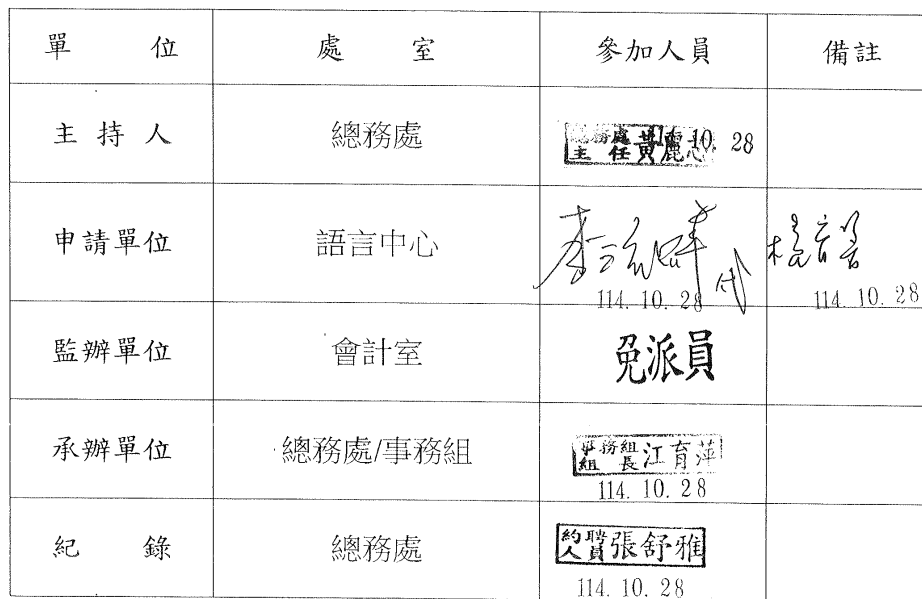 單 位 處 室 參加人員 備註
主 持 人 總務處 總務處主任黃麗 114.10.28
申請單位 語言中心 李 代
114.10.28 114.10.28
監辦單位 會計室 免派員
承辦單位 總務處/事務組 事務組組長江育萍
114.10.28
紀 錄 總務處 約聘人員張舒雅
114.10.28